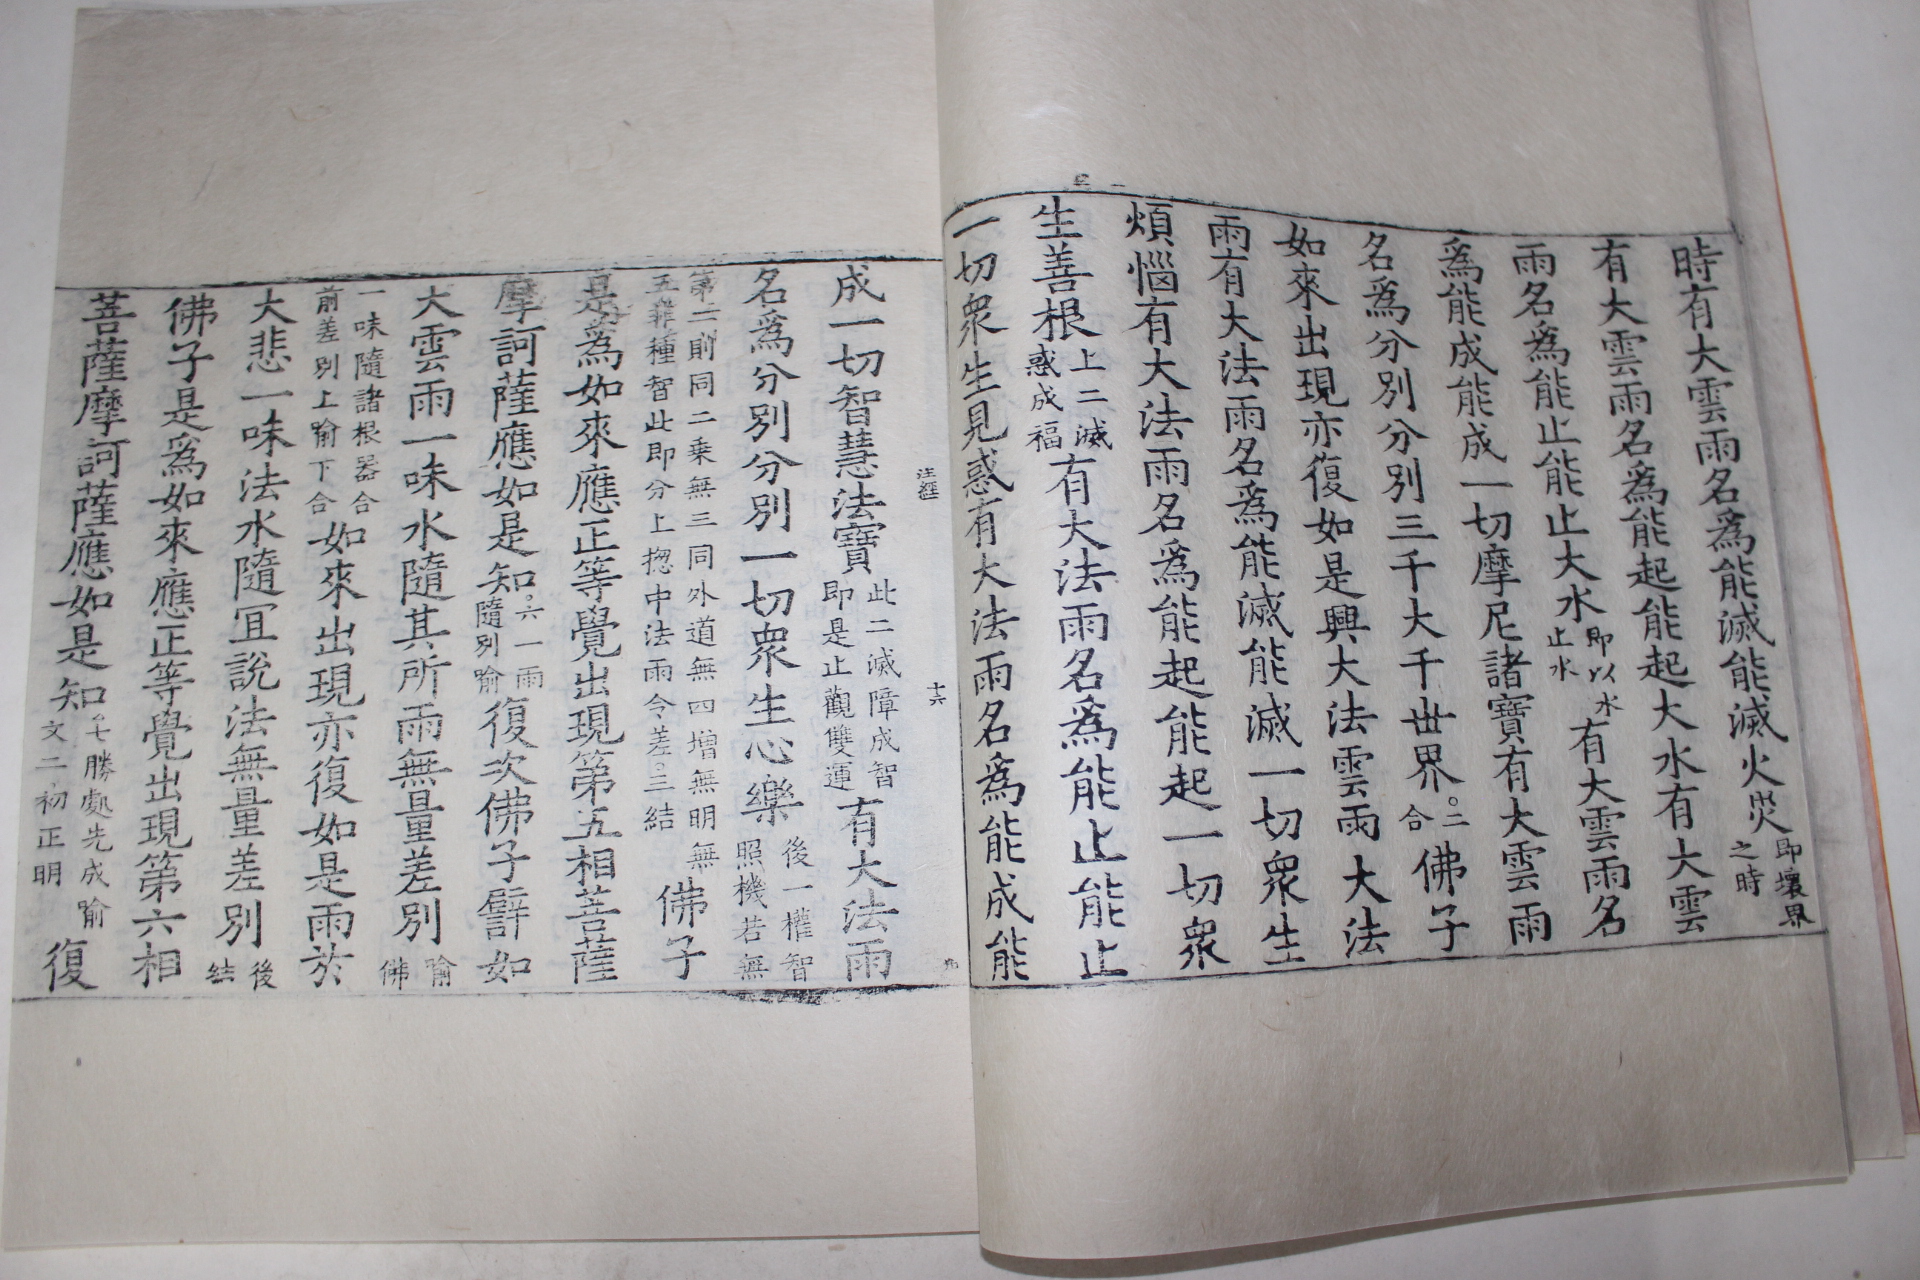 時有大雲雨名爲能滅能滅火災即壞界之時
有大雲雨名爲能起能起大水有大雲
雨名爲能止能止大水即以水止水有大雲雨名
爲能成能成一切摩尼諸寶有大雲雨
名爲分別分別三千大千世界。二合佛子
如來出現亦復如是興大法雲雨大法
雨有大法雨名爲能滅能滅一切衆生
煩惱有大法雨名爲能起能起一切衆
生善根上二滅惑成福有大法雨名爲能止能止
一切衆生見惑有大法雨名爲能成能
注經
十六
成一切智慧法寶此二滅障成智即是止觀雙運有大法雨
名爲分別分別一切衆生心樂後一權智照機若無
第二則同二乗無三同外道無四增無明無
五非種智此即分上揔中法雨今差。三結佛子
是爲如來應正等覺出現第五相菩薩
摩訶薩應如是知。六一雨隨別喻復次佛子譬如
大雲雨一味水隨其所雨無量差別喻佛
一味隨諸根器合前差別上喻下合如來出現亦復如是雨於
大悲一味法水隨冝說法無量差別後結
佛子是爲如來應正等覺出現第六相
菩薩摩訶薩應如是知。七勝處先成喻文二初正明復